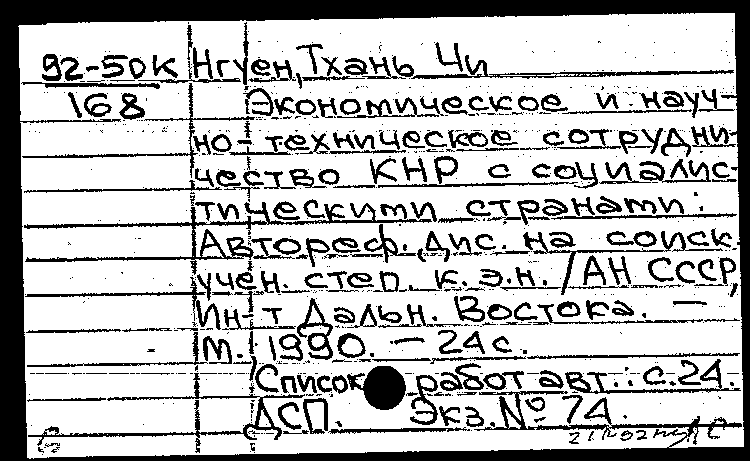 92-50К Нгуен, Тхань Чи
168 Экономическое и науч-
но-техническое сотрудни-
чество КНР с социалис-
тическими странами:
Автореф. дис. на соиск.
учен. степ. к.э.н. /АН СССР,
Ин-т Дальн. Востока. —
М. 1990. — 24с.
Список работ авт.: с.24.
ДСП. Экз. № 74.